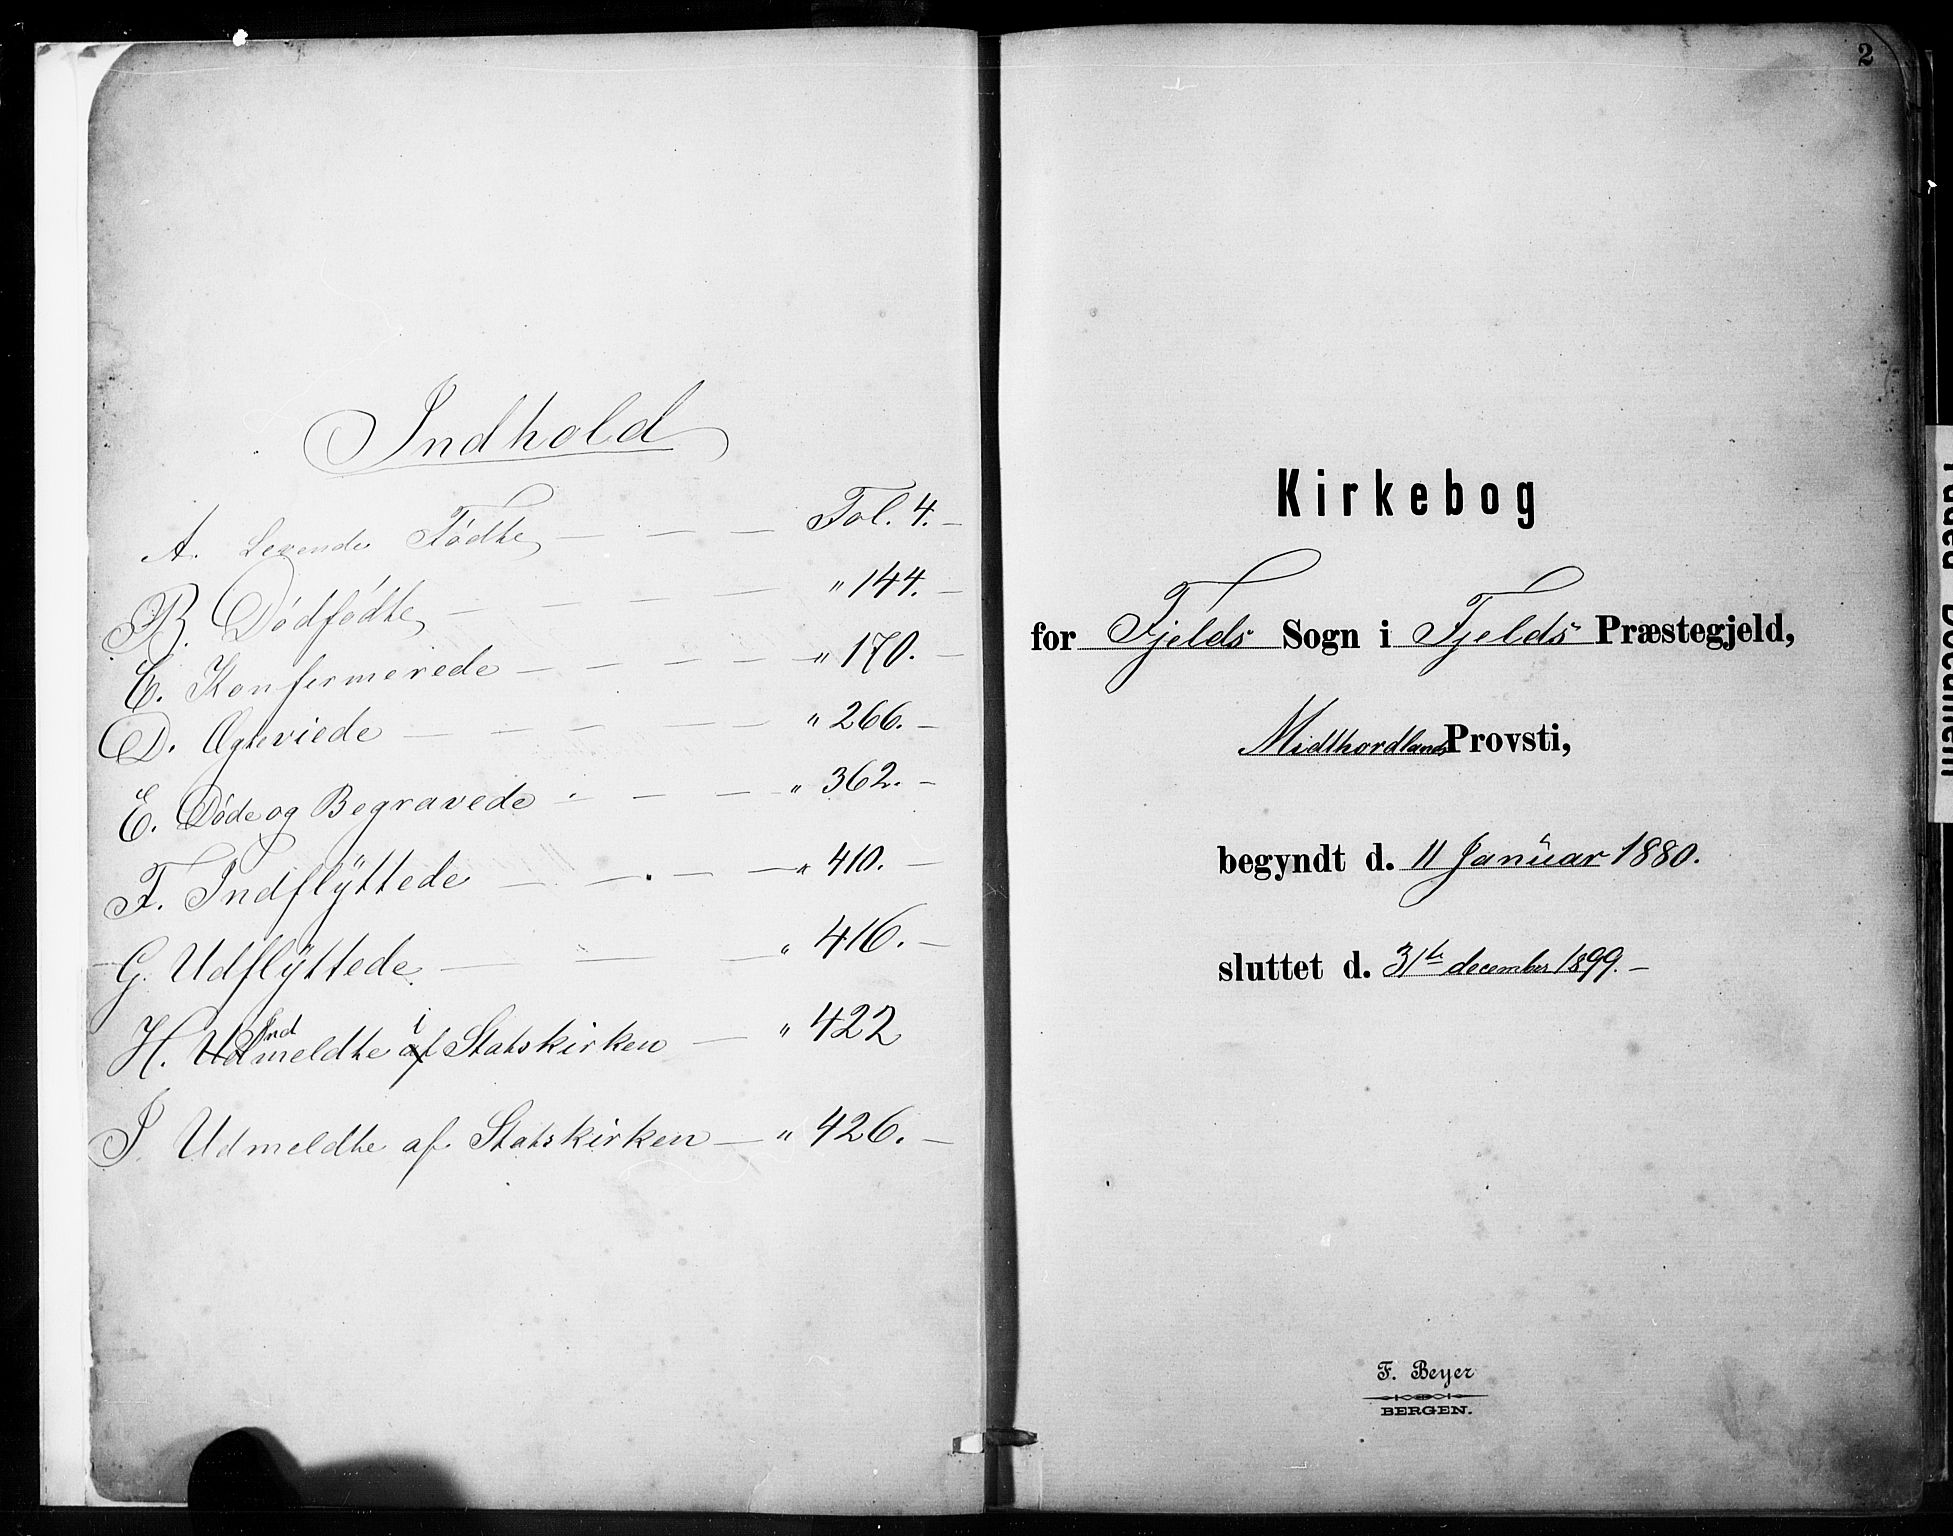 Indhold
A. Levende Fødte — — — Fol. 4. —
B. Dødfødte — — — — " 144. —
C. Konfermerede — — — — — " 170. —
D. Ægteviede — — — — — " 266. —
E. Døde og Begravede — — — " 362. —
F. Indflÿttede — — — — " 410. —
G. Udflÿttede — — — " 416. —
H. Indmeldte i Statskirken — " 422
I. Udmeldte af Statskirken — " 426. —
2
Kirkebog
for Fjelds Sogn i Fjelds Præstegjeld,
Midthordlands Provsti,
begyndt d. 11 Januar 1880.
sluttet d. 31te december 1899. —
F. Beyer
BERGEN.